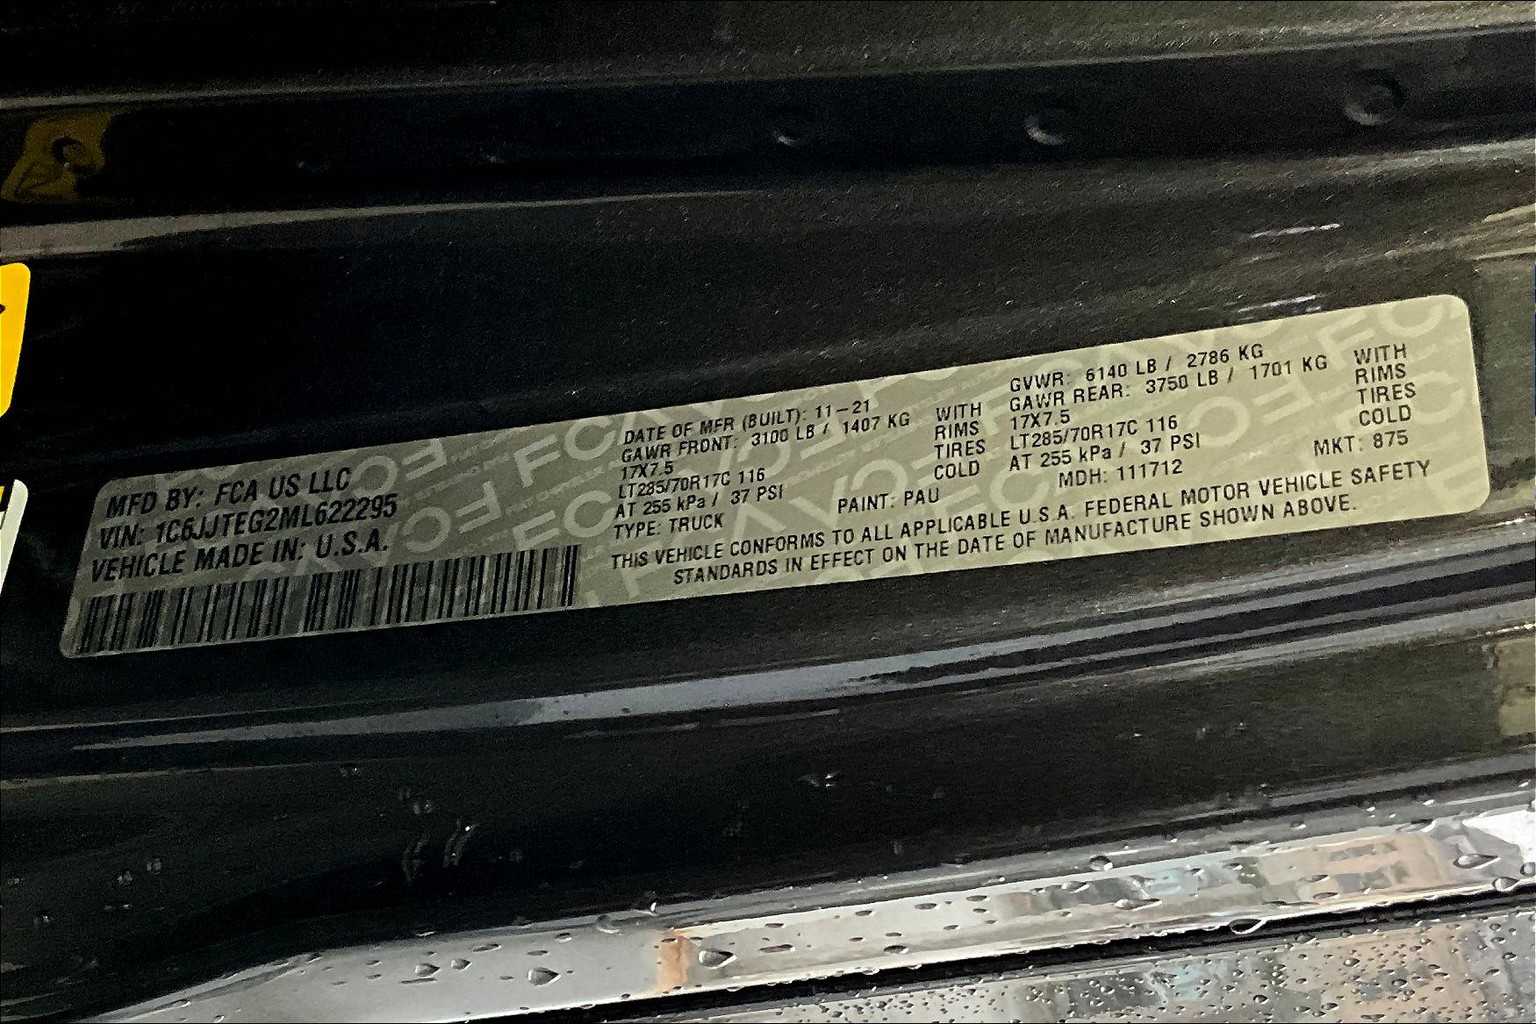 MFD BY: FCA US LLC
VIN: 1C6JJTEG2ML622295
VEHICLE MADE IN: U.S.A.
DATE OF MFR (BUILT): 11-21
GAWR FRONT: 3100 LB / 1407 KG WITH
17X7.5 RIMS
LT285/70R17C 116 TIRES
AT 255 kPa / 37 PSI COLD
TYPE: TRUCK PAINT: PAU
GVWR: 6140 LB / 2786 KG
GAWR REAR: 3750 LB / 1701 KG WITH
17X7.5 RIMS
LT285/70R17C 116 TIRES
AT 255 kPa / 37 PSI COLD
MDH: 111712 MKT: 875
THIS VEHICLE CONFORMS TO ALL APPLICABLE U.S.A. FEDERAL MOTOR VEHICLE SAFETY
STANDARDS IN EFFECT ON THE DATE OF MANUFACTURE SHOWN ABOVE.